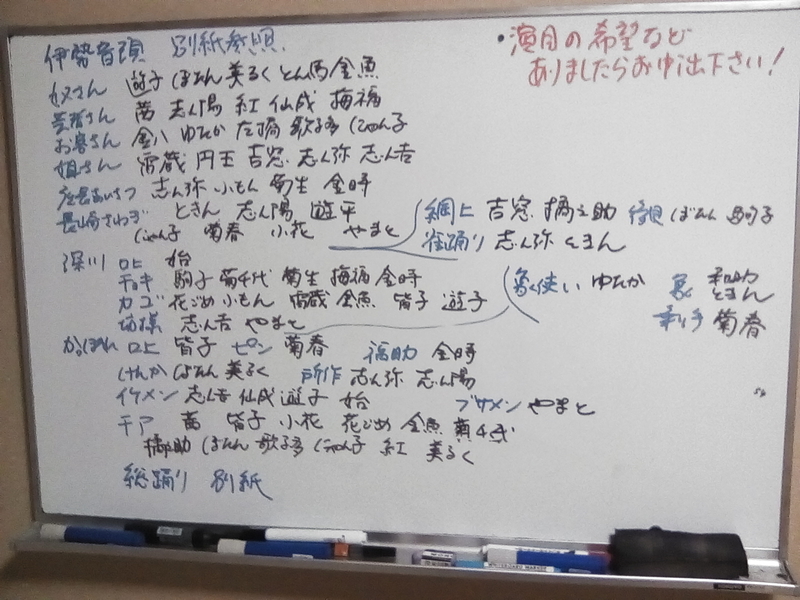 伊勢音頭 別紙参照.
・演目の希望など
ありましたらお申出下さい!
奴さん 遊子 ぼたん 美るく とん馬 金魚
芸者さん 茜 志ん陽 紅 仙成 梅福
お客さん 金八 ゆたか 左橋 歌る多 にゃん子
姐さん 雷蔵 円王 吉窓 志ん弥 志ん吉
座長あいさつ 志ん弥 小もん 菊生 金時
長崎さわぎ ときん 志ん陽 遊平
にゃん子 菊春 小花 やまと
綱上 吉窓 橘之助 後見 ぼたん 駒子
雀踊り 志ん弥 ときん
深川 口上 始
チョキ 駒子 菊千代 菊生 梅福 金時
カゴ 花ごめ 小もん 雷蔵 金魚 皆子 遊子
坊様 志ん吉 やまと
象使い ゆたか 象 和助
ときん
乗り手 菊春
かっぽれ 口上 皆子 ピン 菊春 福助 金時
けんか ぼたん 美るく 所作 志ん弥 志ん陽
イケメン 志ん吉 仙成 遊子 始 ブサメン やまと
チア 茜 皆子 小花 花ごめ 金魚 菊千代
橘之助 ぼたん 歌る多 にゃん子 紅 美るく
総踊り 別紙